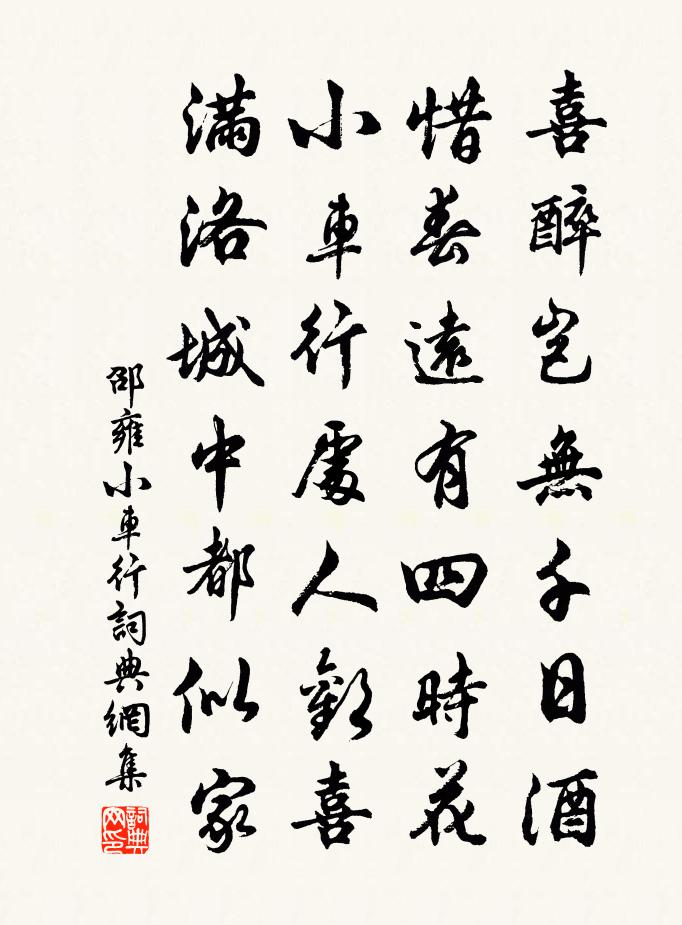 喜醉豈無千日酒
惜春還有四時花
小車行處人歡喜
滿洛城中都似家
邵雍小車行詞典網集
詞典网印